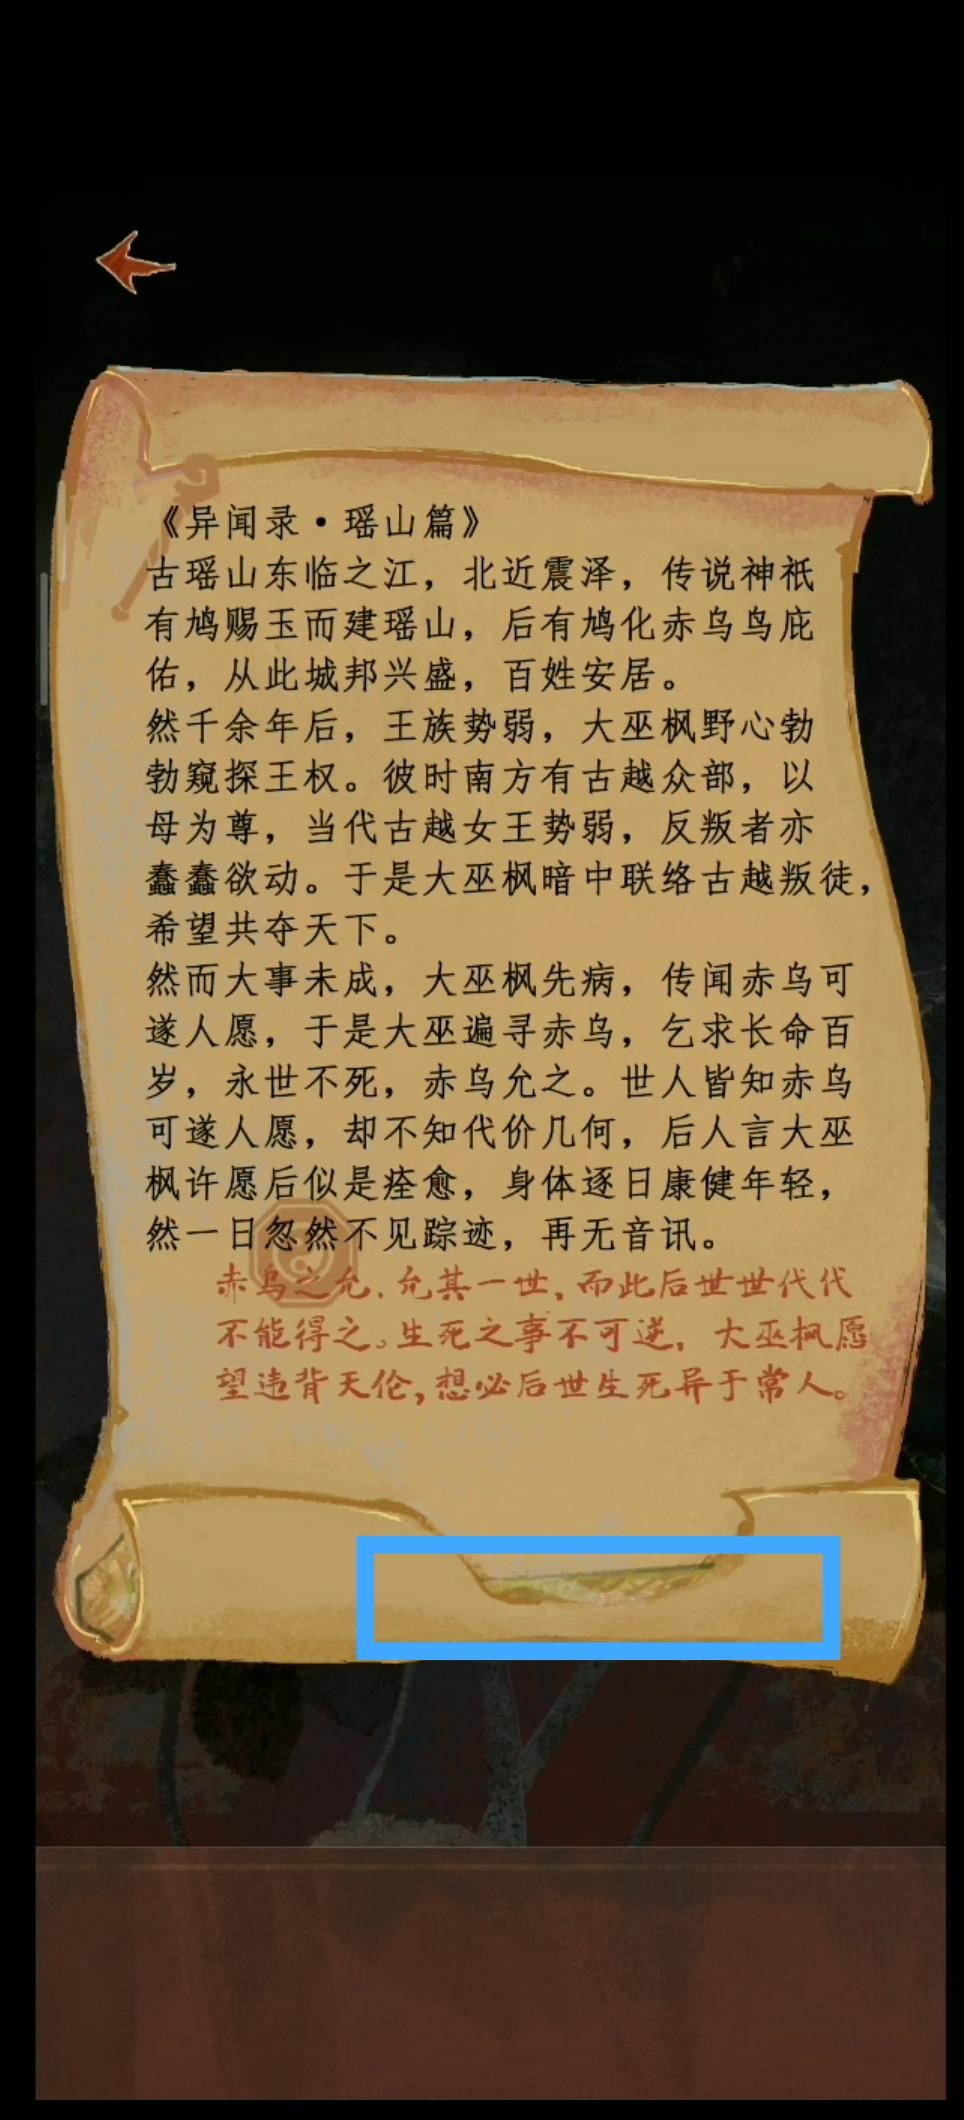 《异闻录·瑶山篇》
古瑶山东临之江，北近震泽，传说神祇
有鸠赐玉而建瑶山，后有鸠化赤乌鸟庇
佑，从此城邦兴盛，百姓安居。
然千余年后，王族势弱，大巫枫野心勃
勃窥探王权。彼时南方有古越众部，以
母为尊，当代古越女王势弱，反叛者亦
蠢蠢欲动。于是大巫枫暗中联络古越叛徒，
希望共夺天下。
然而大事未成，大巫枫先病，传闻赤乌可
遂人愿，于是大巫遍寻赤乌，乞求长命百
岁，永世不死，赤乌允之。世人皆知赤乌
可遂人愿，却不知代价几何，后人言大巫
枫许愿后似是痊愈，身体逐日康健年轻，
然一日忽然不见踪迹，再无音讯。
赤乌之允，允其一世，而此后世世代代
不能得之。生死之事不可逆，大巫枫愿
望违背天伦，想必后世生死异于常人。